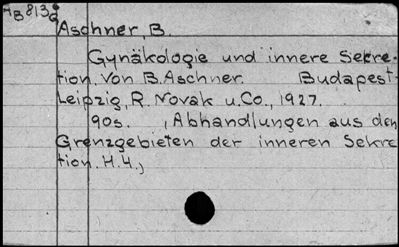 AB 8139
Aschner, B.
Gynäkologie und innere Sekre-
tion. Von B. Aschner. Budapest-
Leipzig, R. Novak u. Co., 1927.
90s. (Abhandlungen aus den
Grenzgebieten der inneren Sekre
tion. H. 4.)